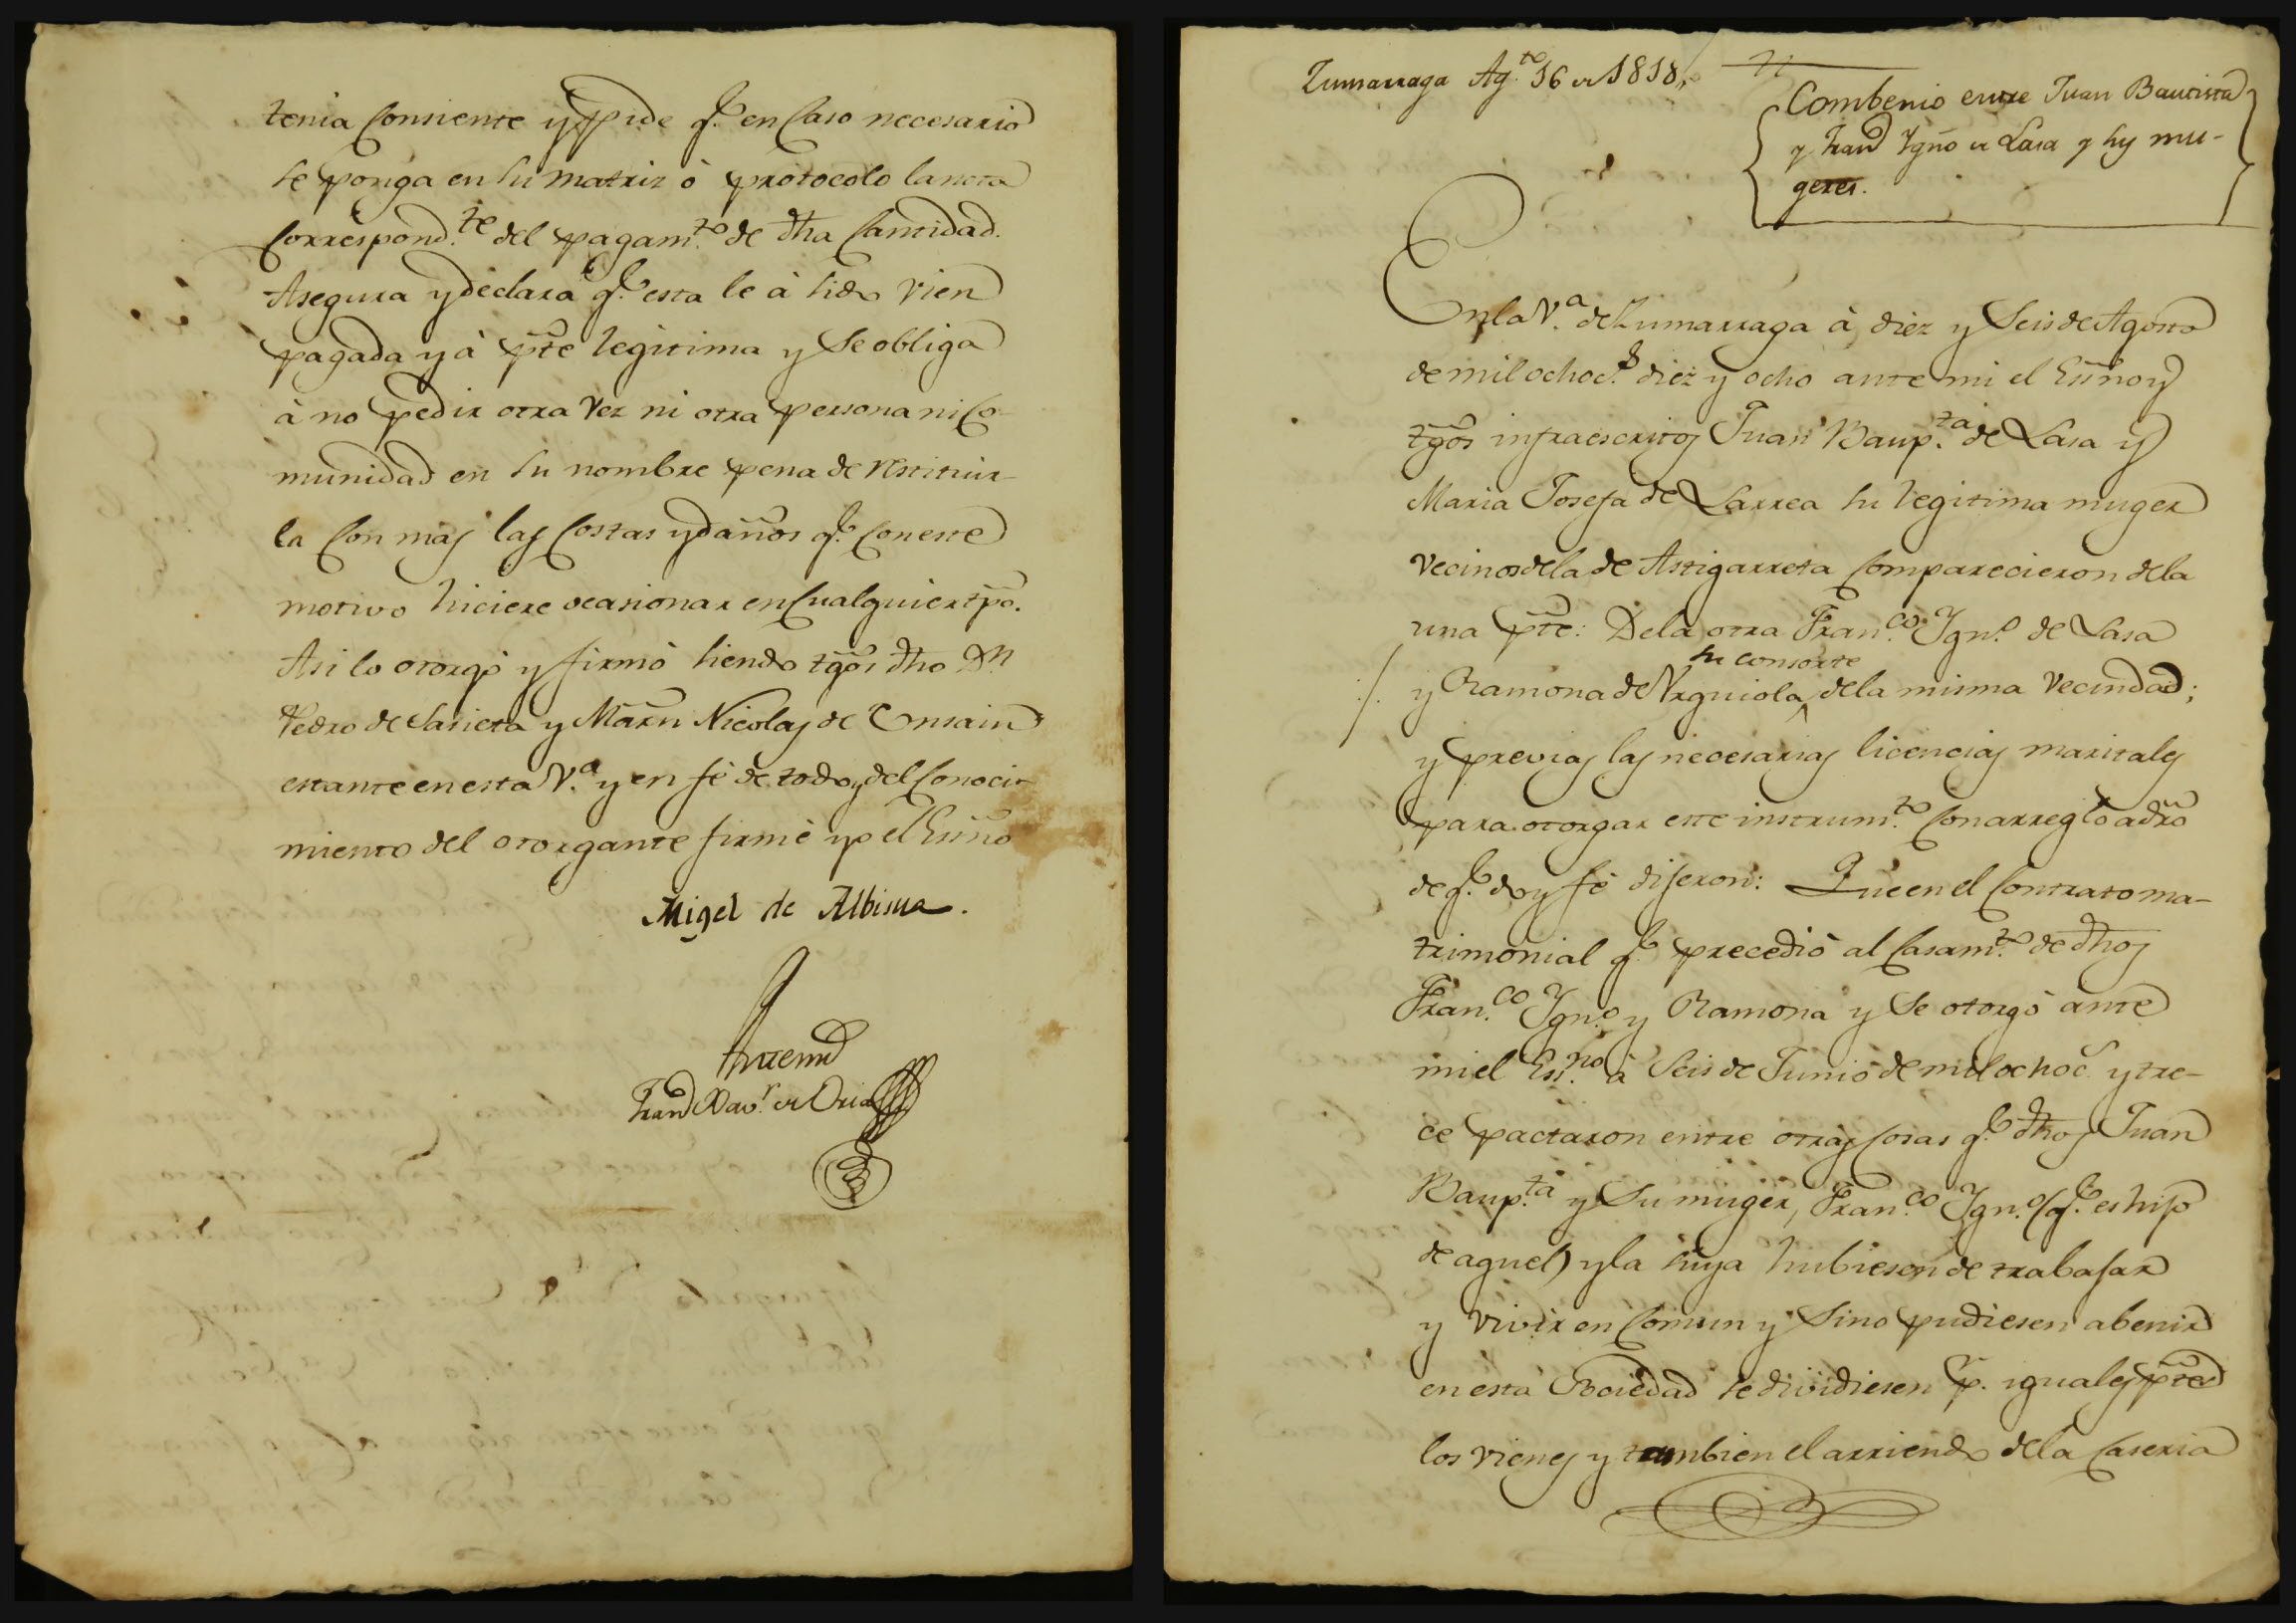 tenia consiente y pide q.e en caso necesario
se ponga en su matriz ò protocolo la nota
correspond.te del pagam.to de dha cantidad.
Asegura y declara q.e esta le à sido vien
pagada y à pte legitima y se obliga
à no pedir otra vez ni otra persona ni co-
munidad en su nombre pena de restituir-
la con mas las costas y daños q.e con este
motivo hiciere ocasionar en cualquier tpo.
Asi lo otorgò y firmò siendo tgos dho Dn
Pedro de Sasieta y Martn Nicolas de Ensain
estante en esta V.a y en fè de todo y del conoci-
miento del otorgante firmè yo el Essno
Migel de Albisua.
Ante mi
Fran.co Xav.r de Oria
Zumarraga Ag.to 16 de 1818,,
Combenio entre Juan Bautista
y Fran.co Ygno de Lasa y sus mu-
geres.
En la V.a de Zumarraga à diez y seis de Agosto
de mil ochoc.s diez y ocho ante mi el Essno y
tgos infraescritos Juan Baup.ta de Lasa y
Maria Josefa de Larrea su legitima muger
vecinos de la de Astigarreta comparecieron de la
una pte: De la otra Fran.co Ygn.o de Lasa
su consorte
:/. y Ramona de Urguiola, de la misma vecindad;
y previas las necesarias licencias maritales
para otorgar este instrum.to con arreglo a dro
de q.e doy fè dijeron: Que en el contrato ma-
trimonial q.e precediò al casam.to de dhos
Fran.co Ygn.o y Ramona y se otorgò ante
mi el Ess.no à seis de Junio de mil ochoc.s y tre-
ce pactaron entre otras cosas q.e dhos Juan
Baup.ta y su muger, Fran.co Ygn.o (q.e es hijo
de aquel) y la suya hubiesen de trabajar
y vivir en comun y si no pudiesen abenir
en esta sociedad se dividiesen p. iguales ptes
los vienes y tambien el arriendo de la caseria